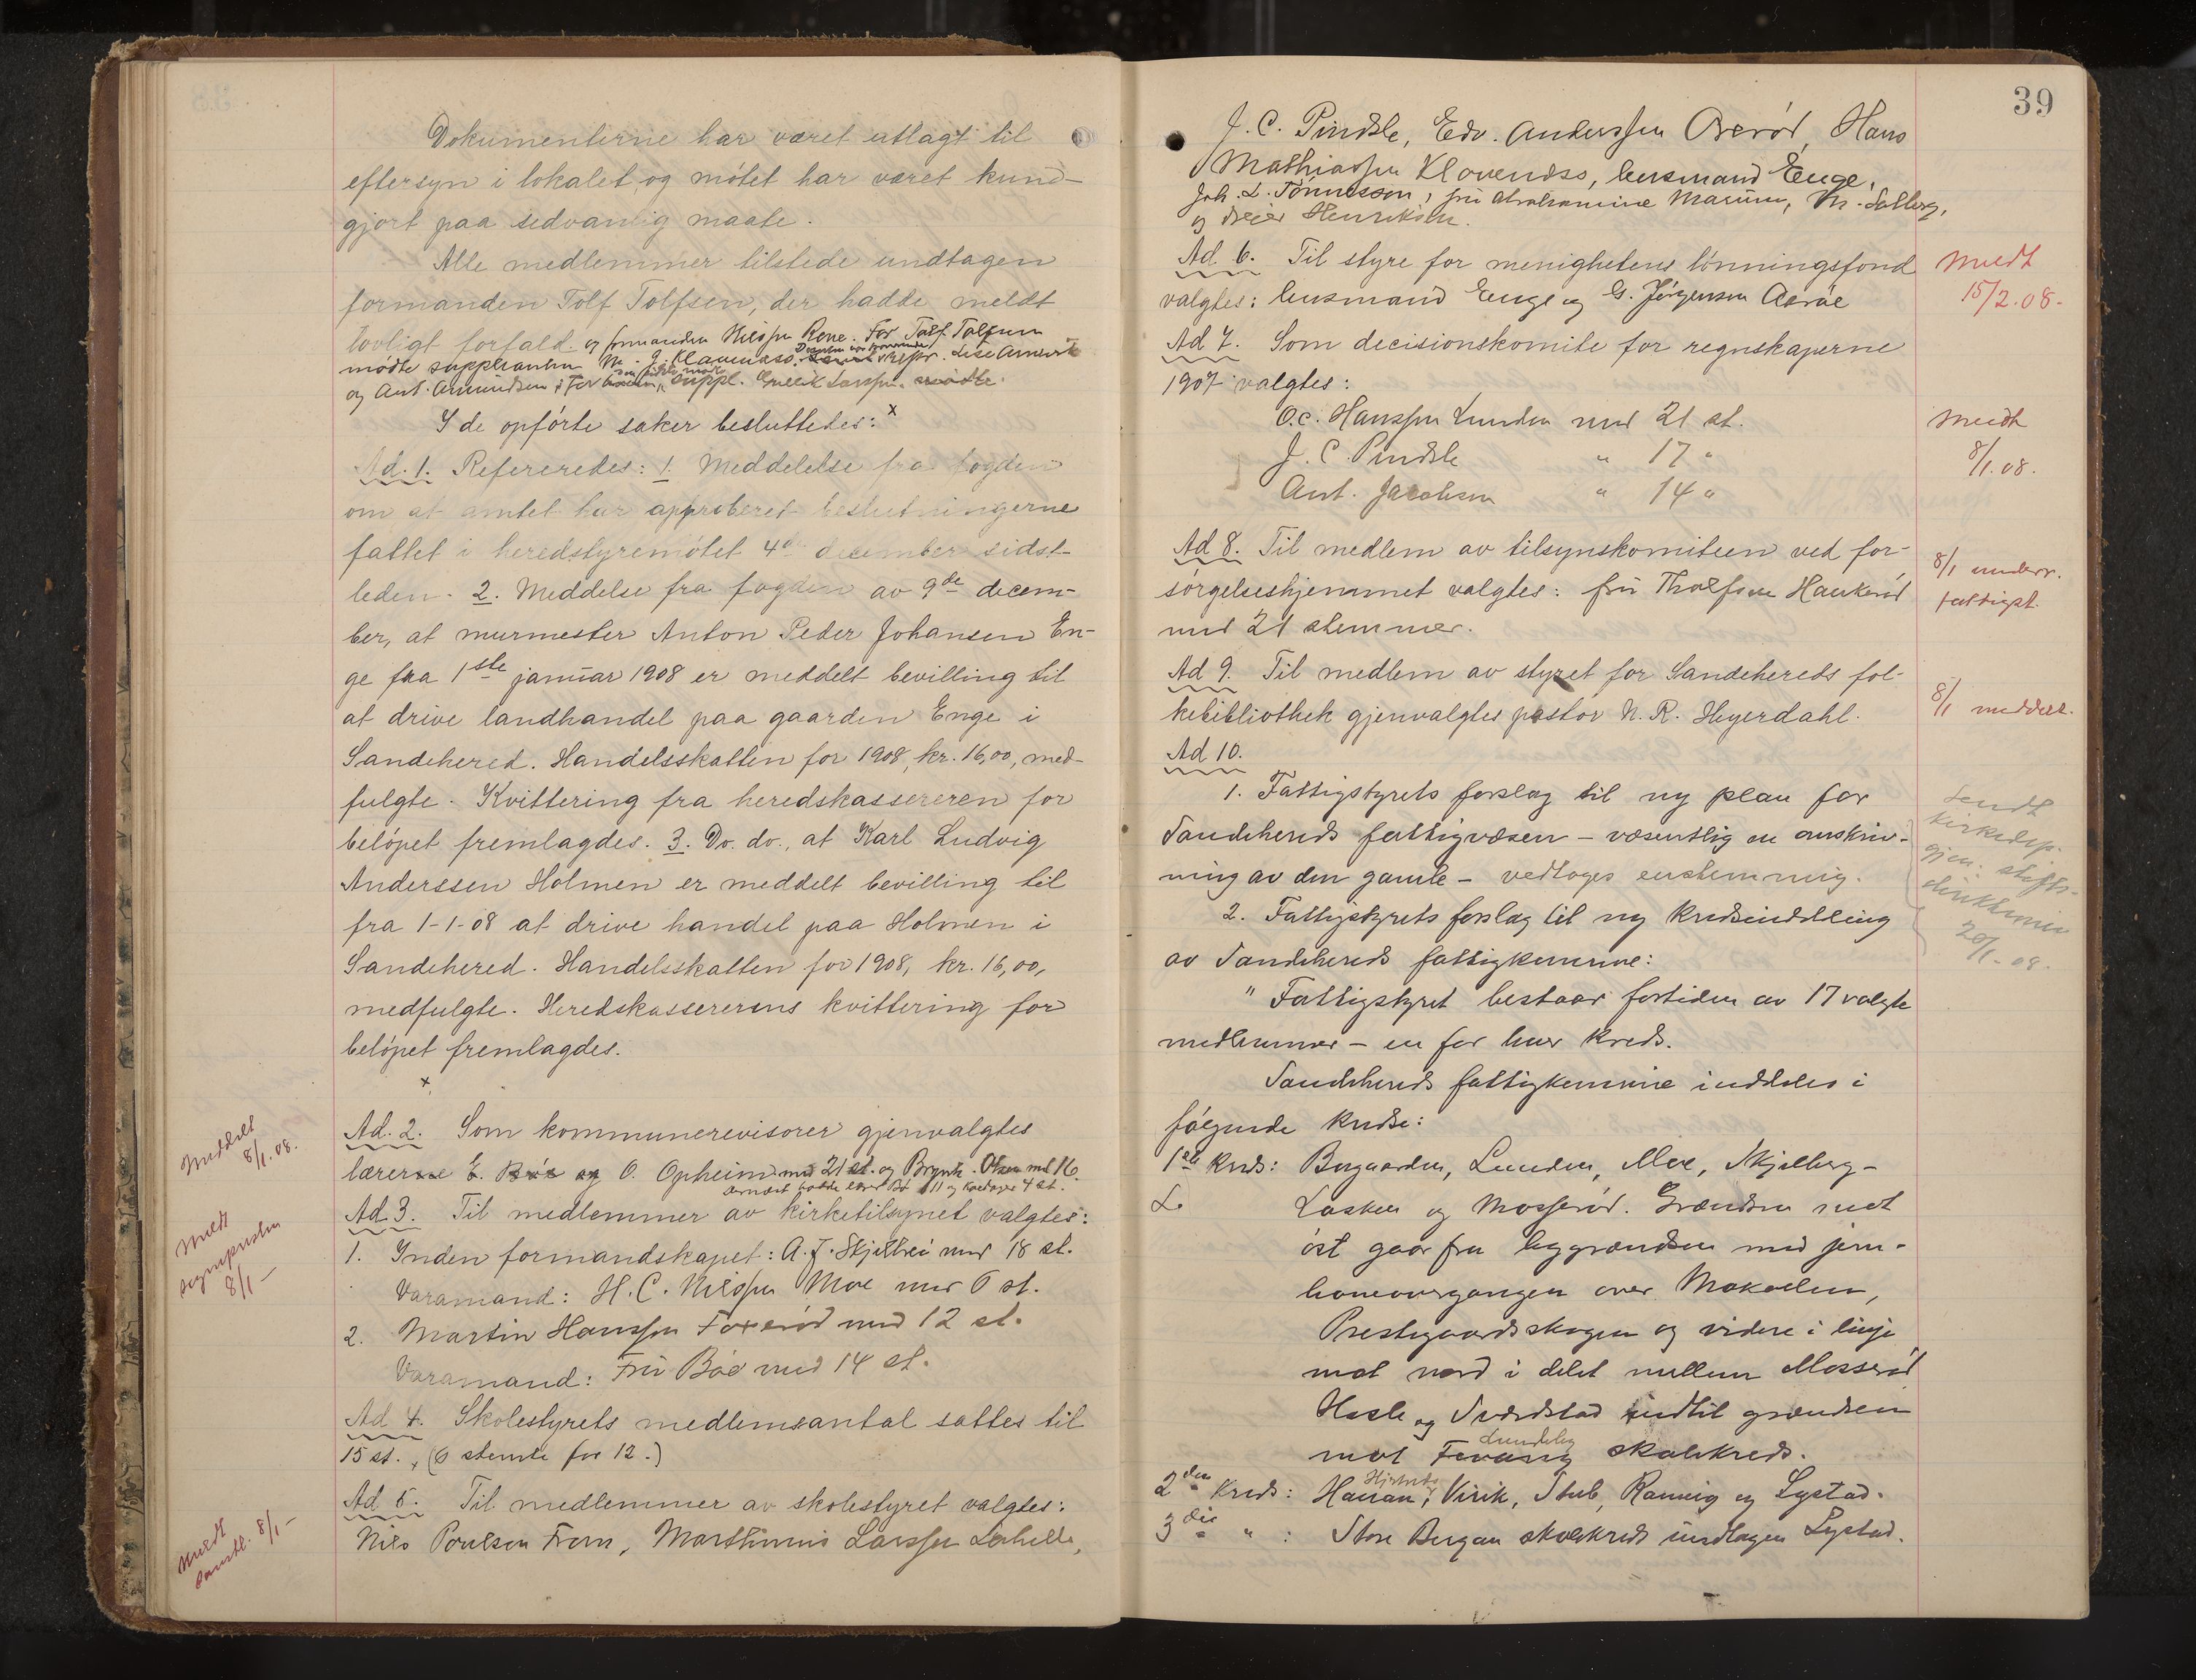 Dokumenterne har været utlagt til
eftersyn i lokalet og mötet har været kund-
gjort paa sedvanlig maate.
Alle medlemmer tilstede undtagen
formanden Tolf Tolfsen, der hadde meldt
lovligt forfald og formanden Nilssen Rove. For Tolf Tolfsen
mödte suppleanten M. J. Klavenæss.
og Ant. Amundsen, for suppl. Gullik Larssen mödte.
I de opförte saker besluttedes: x
Ad. 1. Refereredes: 1. Meddelelse fra fogden
om at amtet har approberet beslutningerne
fattet i heredstyremötet 4de december sidst-
leden. 2. Meddelse fra fogden av 9de decem-
ber, at murmester Anton Peder Johansen En-
ge fra 1ste januar 1908 er meddelt bevilling til
at drive landhandel paa gaarden Enge i
Sandehered. Handelsskatten for 1908, kr. 16,00, med-
fulgte. Kvittering fra heredskassereren for
belöpet fremlagdes. 3. Do. do., at Karl Ludvig
Anderssen Holmen er meddelt bevilling til
fra 1-1-08 at drive handel paa Holmen i
Sandehered. Handelsskatten for 1908, kr. 16,00,
medfulgte. Heredskassererens kvittering for
belöpet fremlagdes.
x
Meddelt
8/1.08.
Ad. 2. Som kommunerevisorer gjenvalgtes
lærerne E. Böe og O. Opheim med 21 st. og Brynh. Olsen med 16.
dernæst hadde lærer Bö 11 og 4 st.
Meldt
sognepresten
8/1 -
Ad. 3. Til medlemmer av kirketilsynet valgtes:
1. Inden formandskapet: A. J. Skjelbrei med 18 st.
Varamand: H. C. Nilssen Moe med 6 st.
2. Martin Hanssen Foxeröd med 12 st.
Varamand: Fru Böe med 14 st.
Ad 4. Skolestyrets medlemsantal sattes til
15 st. (6 stemte for 12.)
Meldt
8/1 -
Ad 5. Til medlemmer av skolestyret valgtes:
Nils Poulsen Fram, Marthinius Larssen Lahelle,
39
J. C. Pindsle, Edv. Anderssen Oxeröd, Hans
Mathiassen Klavenæss, lensmand Enge,
Joh. L. Tönnesson, fru Abrahamine Marum, M. Solberg,
og Henriksen.
Ad. 6. Til styre for menighetens lönningsfond
valgtes: lensmand Enge og G. Jörgensen Aaröe
Meldt
15/2.08.
Ad 7. Som decisionskomite for regnskaperne
1907 valgtes:
O.C. Hanssen Lunden med 21 st.
J. C. Pindsle " 17 "
Ant. Jacobsen " 14 "
Meldt
8/1.08.
Ad 8. Til medlem av tilsynskomiteen ved for-
sörgelseshjemmet valgtes: fru Tholfsen Haukeröd
med 21 stemmer.
8/1 underr.
fattigst.
Ad 9. Til medlem av styret for Sandehereds fol-
kebibliothek gjenvalgtes pastor N. R. Heyerdahl.
8/1 meddelt.
Ad 10.
1. Fattigstyrets forslag til ny plan for
Sandehereds fattigvæsen - væsentlig en omskriv-
ning av den gamle - vedtoges enstemmig.
Sendt
kirkedep.
gjen. stifts-
direktionen
20/1-08.
2. Fattigstyrets forslag til ny kredsinddeling
av Sandehereds fattigkommune:
" Fattigstyret bestaar fortiden av 17 valgte
medlemmer - en for hver kreds.
Sandehereds fattigkommune inddeles i
fölgende kredse:
1ste kreds: Bugaarden, Lunden, Moe, Skjelberg-
Lasken og Mosseröd. Grændsen mot
öst gaar fra bygrændsen med jern-
baneovergangen over Mokollen,
Prestegaardsskogen og videre i linje
mot nord i delet mellem Mosseröd
Hasle og Sverdstad indtil grændsen
Lundeby
mot Fevang skolekreds.
Hjertnes
2den Kreds: Hauan, Virik, Stub, Ranvig og Lystad.
3die " : Store Bergan skolekreds undtagen Lystad.